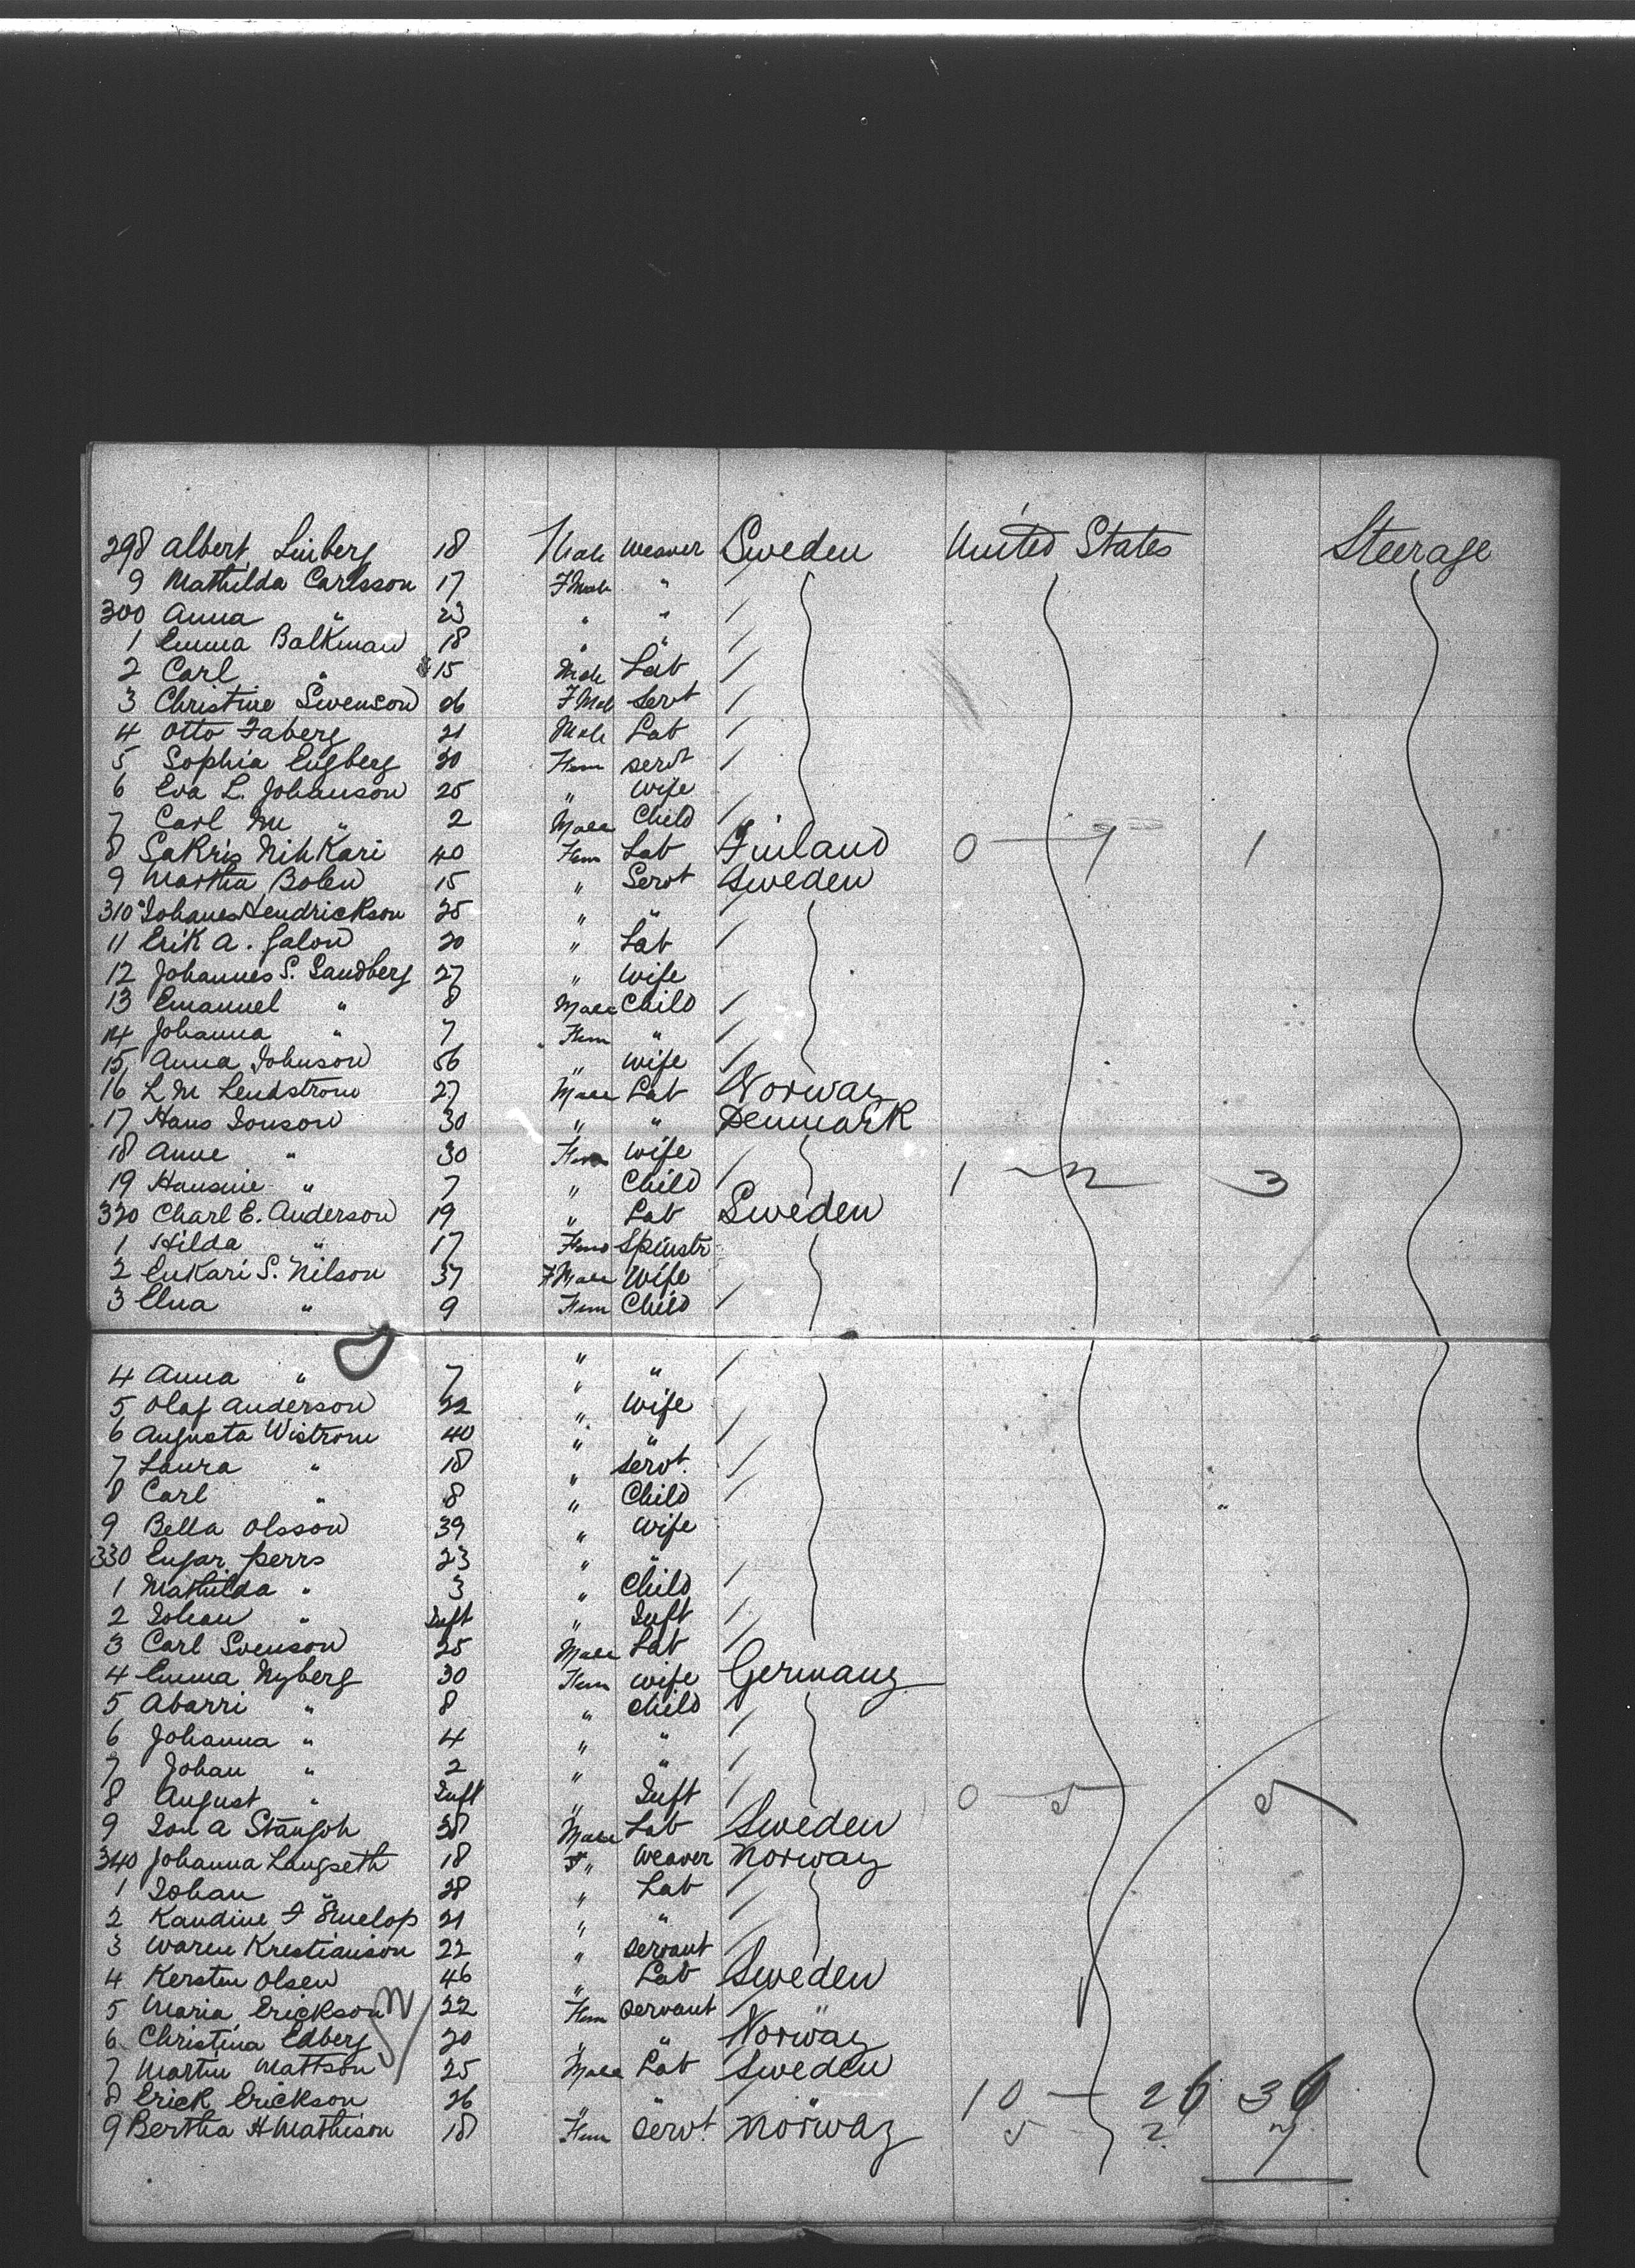 298 Albert Linberg 18 Male Weaver Sweden United States Steerage
9 Mathilda Carlsson 17 FMale "
300 Anna " 23 " "
1 Emma Balkman 18 " "
2 Carl " 15 Male Lab
3 Christine Swenson 26 FMale Servt
4 Otto Faberg 21 Male Lab
5 Sophia Engberg 20 Fem servt
6 Eva L. Johanson 25 " Wife
7 Carl M " 2 Male Child
8 Sakris Nihkari 40 Fem Lab Finland 0 — 1 1
9 Martha Bolen 15 " Servt Sweden
310 Johanes Hendrickson 25 " "
11 Erik A. Galon 20 " Lab
12 Johannes S. Sandberg 27 " Wife
13 Emanuel " 8 Male Child
14 Johanna " 7 Fem "
15 Anna Johnson 56 " Wife
16 L M Lendstrom 27 Male Lab Norway
17 Hans Jonson 30 " " Denmark
18 Anne " 30 Fem Wife
19 Hansine " 7 " Child 1 — 2 3
320 Charl E. Anderson 19 " Lab Sweden
1 Hilda " 17 Fem Spinstr
2 Enkari S. Nilson 37 FMale Wife
3 Elna " 9 Fem Child
4 Anna " 7 " "
5 Olof Anderson 22 " Wife
6 Augusta Wistrom 40 " "
7 Laura " 18 " servt.
8 Carl " 8 " Child
9 Bella Olsson 39 " Wife
330 Engar perrs 23 " "
1 Mathilda " 3 " Child
2 Johan " Inft " Inft
3 Carl Svenson 25 Male Lab
4 Emma Nyberg 30 Fem wife Germany
5 Abarri " 8 " child
6 Johanna " 4 " "
7 Johan " 2 " "
8 August " Inft " Inft 0 — 5 5
9 Jon A 38 Male Lab Sweden
340 Johanna Langseth 18 F " Weaver Norway
1 Johan " 28 " Lab
2 Kandine F 21 " "
3 Waren Krestianson 22 " Servant
4 Kersten Olsen 46 " Lab Sweden
5 Maria Erickson 22 Fem Servant
6 Christina Edberg 20 " " Norway
7 Martin Mattson 25 Male Lab Sweden
8 Erick Erickson 26 " " 10 — 26 36
9 Bertha H Mathison 18 Fem Servt. Norway 5 2 7